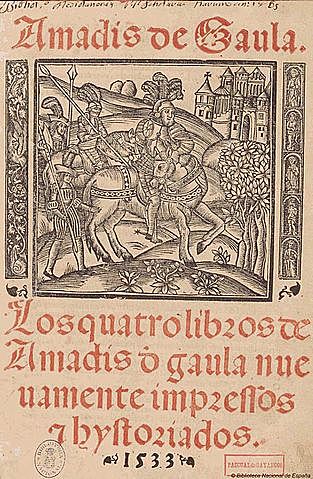 Amadis de Gaula.
Los quatro libros de
Amadis đ gaula nue
uamente impressos
⁊ hystoriados.
1533
PASCUAL DE GAYANGOS
© Biblioteca Nacional de España